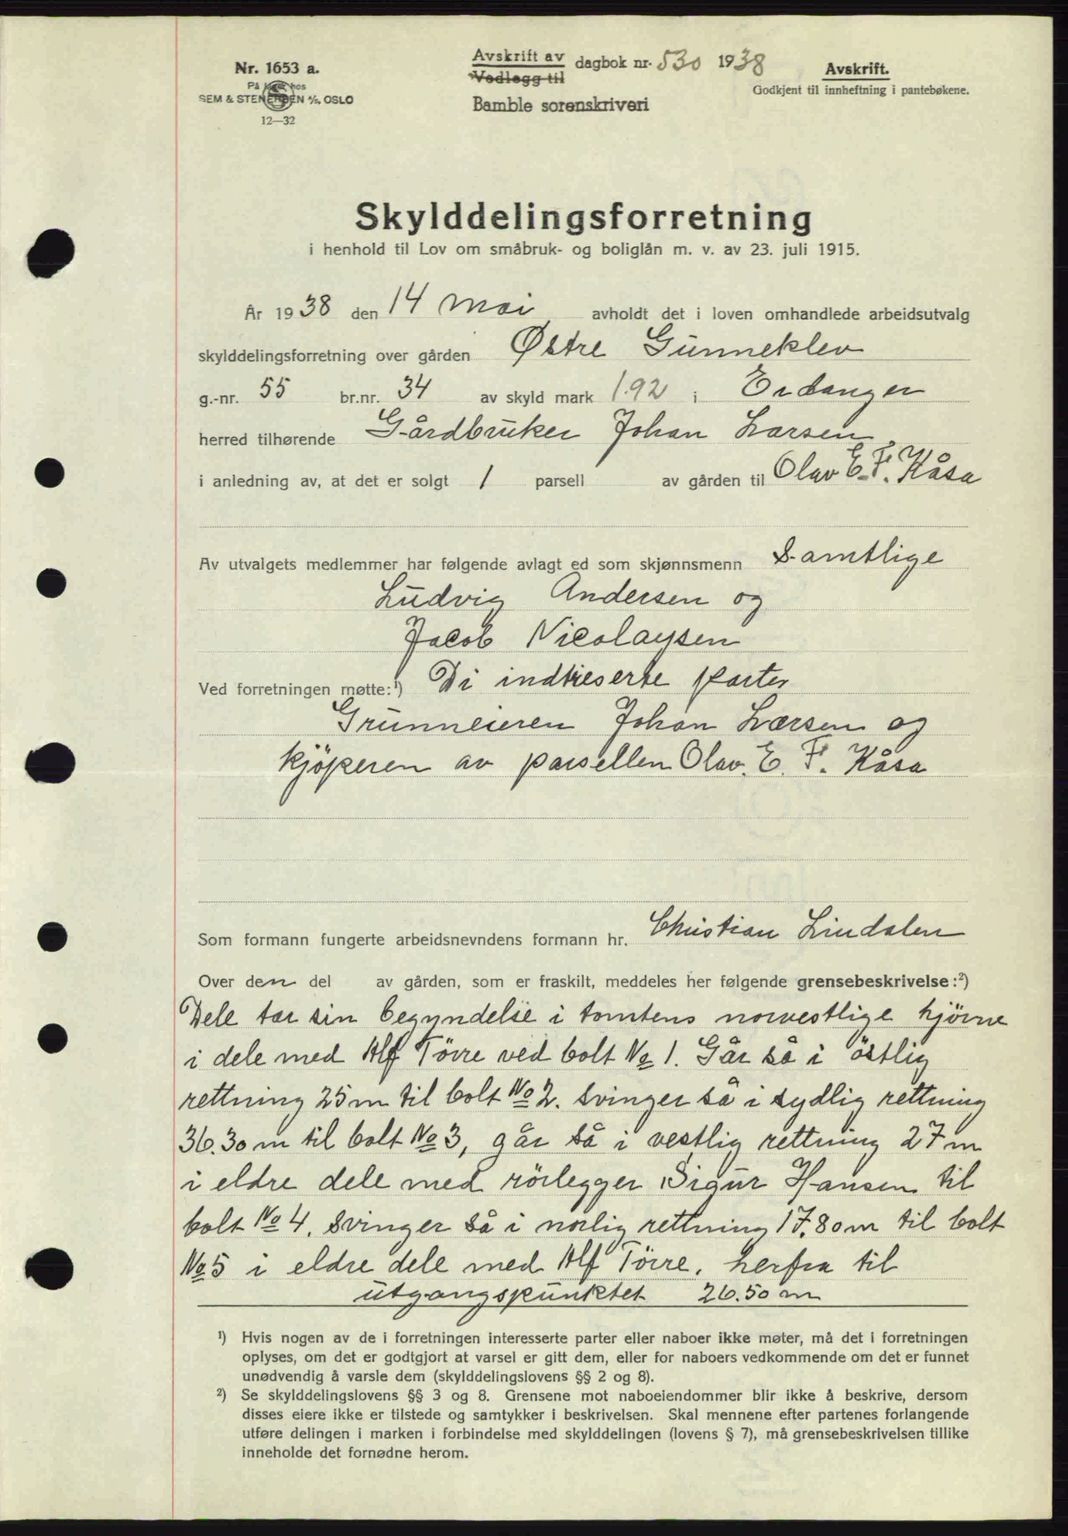 Nr. 1653 a.
På lager hos
SEM & STENERSEN A/S, OSLO
12—32
Avskrift av
Vedlegg til
dagbok nr. 530 1938
Bamble sorenskriveri
Avskrift.
Godkjent til innheftning i pantebøkene.
Skylddelingsforretning
i henhold til Lov om småbruk- og boliglån m. v. av 23. juli 1915.
År 1938 den 14 mai avholdt det i loven omhandlede arbeidsutvalg
skylddelingsforretning over gården Østre Gunneklev
g.-nr. 55 br.nr. 34 av skyld mark 1.92 i Eidanger
herred tilhørende Gårdbruker Johan Larsen
i anledning av, at det er solgt 1 parsell av gården til Olav E. F. Kåsa
Av utvalgets medlemmer har følgende avlagt ed som skjønnsmenn Samtlige
Ludvig Andersen og
Jacob Nicolaysen
Ved forretningen møtte:¹) Di indtreserte parter
Grunneieren Johan Larsen og
kjöperen av parsellen Olav. E. F. Kåsa
Som formann fungerte arbeidsnevndens formann hr. Christian Lindalen
Over den del av gården, som er fraskilt, meddeles her følgende grensebeskrivelse:²)
Dele tar sin begyndelse i tomtens norvestlige hjörne
i dele med Alf Törre ved bolt No 1. Går så i östlig
rettning 25 m til bolt No 2. svinger så i sydlig rettning
36.30 m til bolt No 3, går så i vestlig rettning 27 m
i eldre dele med rörlegger Sigur Hansen til
bolt No 4. svinger så i norlig rettning 17,80 m til bolt
No 5 i eldre dele med Alf Törre. herfra til
utgangspunktet 26.50 m
¹) Hvis nogen av de i forretningen interesserte parter eller naboer ikke møter, må det i forretningen
oplyses, om det er godtgjort at varsel er gitt dem, eller for naboers vedkommende om det er funnet
unødvendig å varsle dem (skylddelingslovens §§ 2 og 8).
²) Se skylddelingslovens §§ 3 og 8. Grensene mot naboeiendommer blir ikke å beskrive, dersom
disses eiere ikke er tilstede og samtykker i beskrivelsen. Skal mennene efter partenes forlangende
utføre delingen i marken i forbindelse med skylddelingen (lovens § 7), må grensebeskrivelsen tillike
inneholde det fornødne herom.